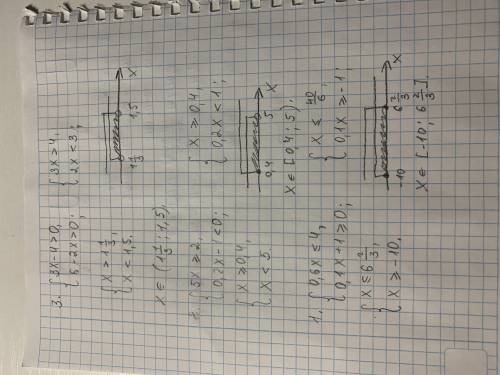 3. { 3x-4>0, { 3x>4,
{ 6-2x>0; { 2x<3;
{ x>1 1/3,
{ x<1,5.
1 1/3 1,5 x
x∈(1 1/3; 1,5).
2. { 5x≥2, { x≥0,4,
{ 0,2x-1<0; { 0,2x<1;
{ x≥0,4,
{ x<5.
0,4 5 x
x∈[0,4; 5).
1. { 0,6x≤4, { x≤40/6,
{ 0,1x+1≥0; { 0,1x≥-1;
{ x≤6 2/3,
{ x≥-10.
-10 6 2/3 x
x∈[-10; 6 2/3].